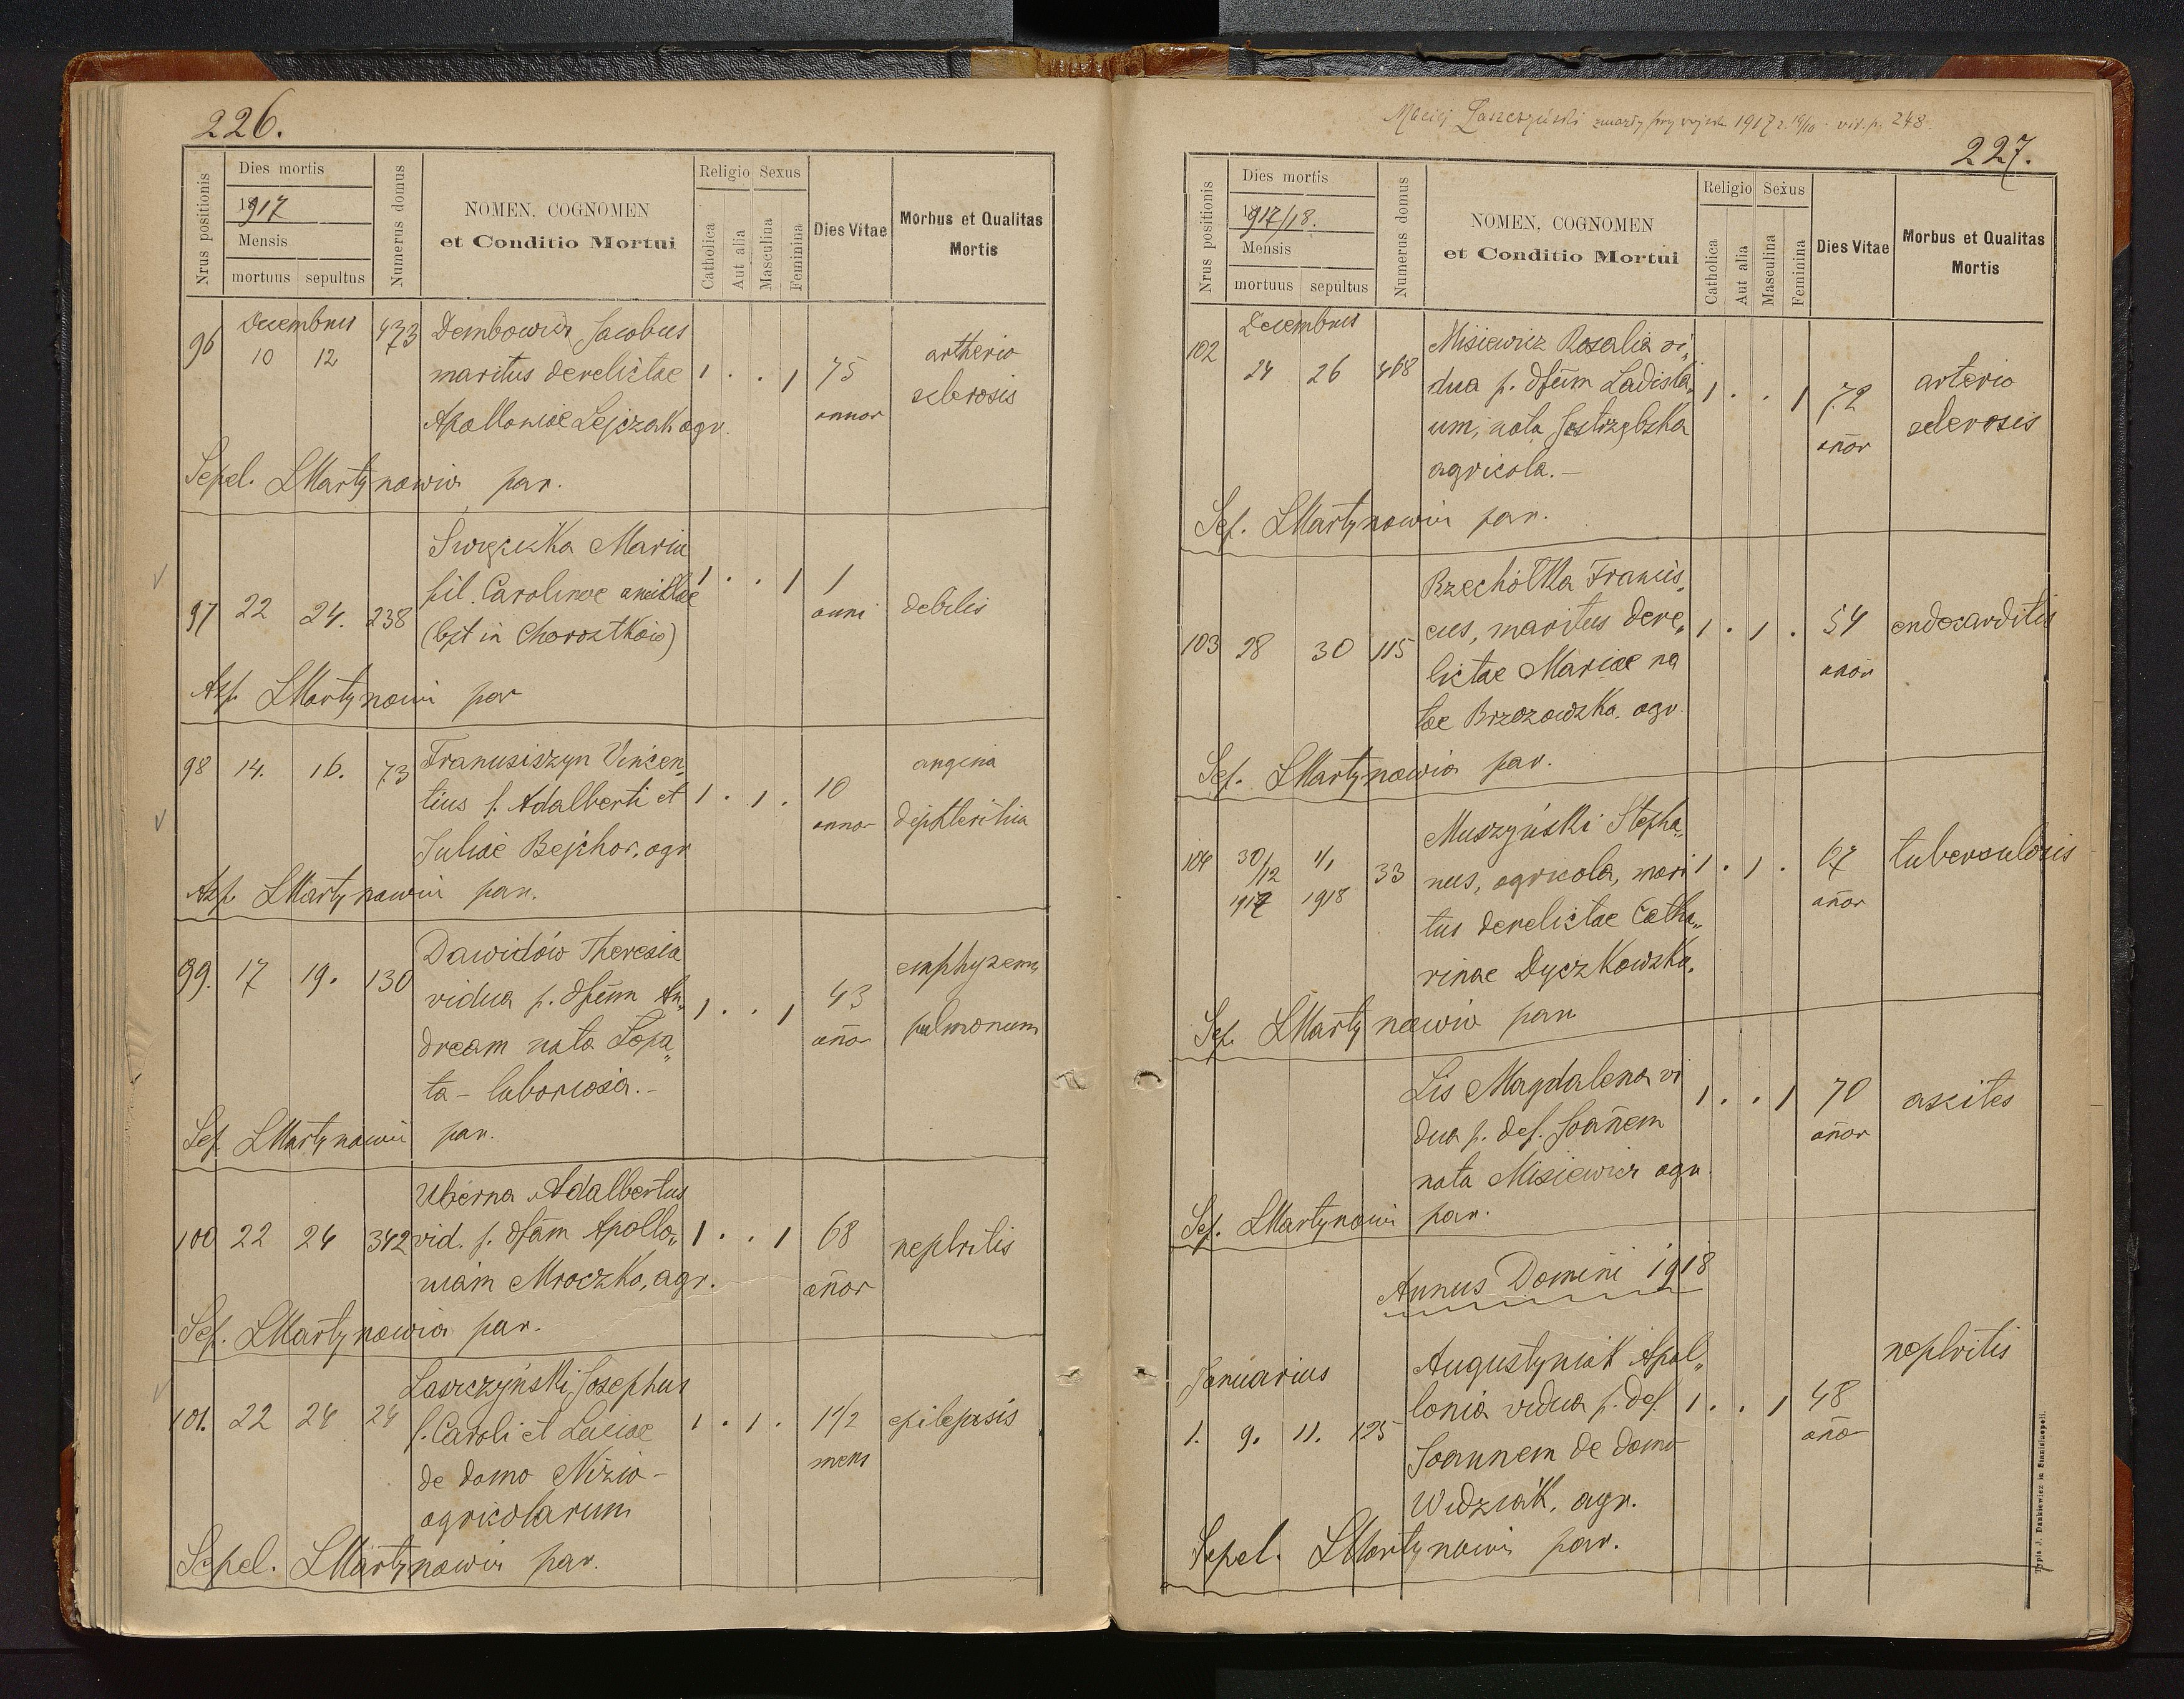 226.
Nrus positionis
Dies mortis
1917
Mensis
mortuus sepultus
Numerus domus
NOMEN, COGNOMEN
et Conditio Mortui
Religio Sexus
Catholica
Aut alia
Masculina
Feminina
Dies Vitae
Morbus et Qualitas
Mortis
Decembris
96 10 12 473 Dembowicz Jacobus
maritus derelictae 1 . . 1 75 artherio
Apolloniae Lejczak agr. annor sclerosis
Sepel. LMartynowicz par.
Swięcicka Maria
97 22 24. 238 fil. Carolinae ancillae 1 . . 1 1 debilis
(bpt in Chorostków) anni
Asp. LMartynowicz par
98 14. 16. 73 Franusiszyn Vincen„ angina
tius f. Adalberti et 1 . 1 . 10
Juliae Bejchor, agr annor diphteritica
Asp. LMartynowicz par.
Dawidów Theresia
99. 17 19. 130 vidua p. dfum An„ 1 . . 1 43 emphysema
dream nata Łopa„ añor pulmonum
ta – laboriosa. –
Sep LMartynowicz par.
Uberna Adalbertus
100 22 24 342 vid. p. dfam Apollo„ 1 . . 1 68 nephritis
niam Mroczko, agr. añor
Sep. LMartynowicz par.
Laszczyński Josephus
101. 22 24 24 f. Caroli et Luciae 1 . 1 . 1 1/2 epilepsis
de domo Nizio – mens
agricolarum
Sepel. LMartynowicz par.
Maciej Laszczyński zmarły przy wojsku 1917 r. 19/10 vid. p. 248.
227.
Nrus positionis
Dies mortis
1917/18.
Mensis
mortuus sepultus
Numerus domus
NOMEN, COGNOMEN
et Conditio Mortui
Religio Sexus
Catholica
Aut alia
Masculina
Feminina
Dies Vitae
Morbus et Qualitas
Mortis
Decembris
102 24 26 468 Misiewicz Rosalia vi„
dua p. dfum Ladisla„ 1 . . 1 72 arterio
um, nata Jastrzębska añor sclerosis
agricola. –
Sep. LMartynowicz par.
Brzechółka Francis„
103 28 30 115 cus, maritus dere„ 1 . 1 . 54 endocarditis
lictae Mariae na añor
tae Brzozowska, agr.
Sep. LMartynowicz par.
Muszyński Stepha„
104 30/12 1/1 33 nus, agricola, mari 1 . 1 . 67 tuberculosis
1917 1918 tus derelictae Catha„ añor
rinae Dyczkowska.
Sep. LMartynowicz par
Lis Magdalena vi 1 . . 1 70 ascites
dua p. def. Joañem añor
nata Misiewicz agr.
Sep. LMartynowicz par.
Annus Domini 1918
Januarius Augustyniak Apol„ nephritis
1. 9. 11. 125 lonia vidua p. def. 1 . . 1 48
Joannem de domo año
Widziak, agr.
Sepel. LMartynowicz par.
Typis J. Dankiewicz in Stanislaopoli.